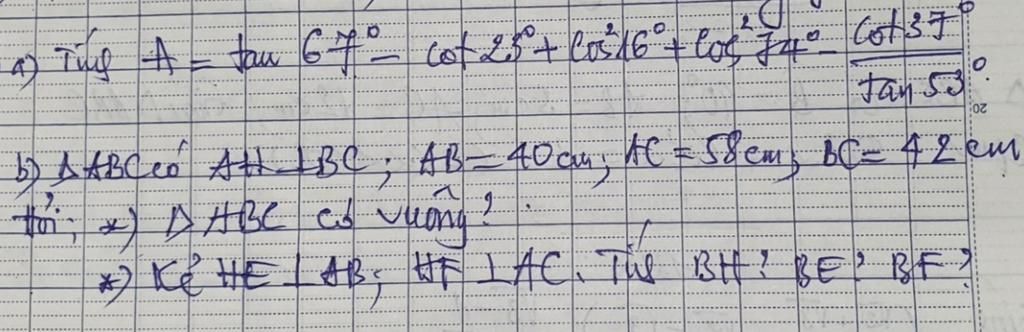 a) Tính A = tan 67° - cot 23° + cos²16° + cos²74° - cot 37° / tan 53°
b) Δ ABC có AH ⊥ BC; AB = 40 cm; AC = 58 cm; BC = 42 cm
Hỏi; *) Δ ABC có vuông?
*) Kẻ HE ⊥ AB; HF ⊥ AC. Tính BH? BE? BF?